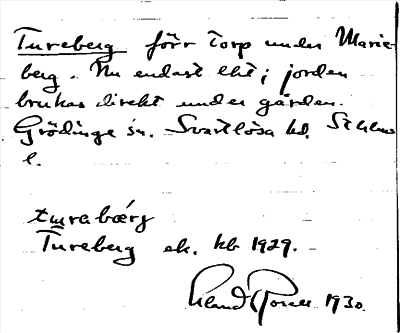 Tureberg förr torp under Marie-
berg. Nu endast ekt; jorden
brukas direkt under gården.
Grödinge sn. Svartlösa hd. Sthlms
l.
Tureberg ek. kb 1929.
1930.